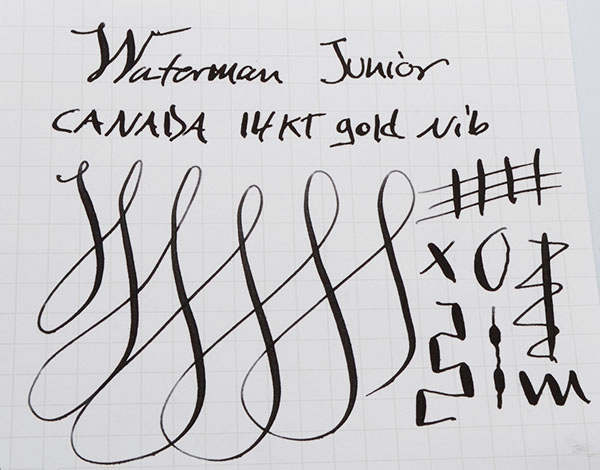 Waterman Junior
CANADA 14KT gold nib